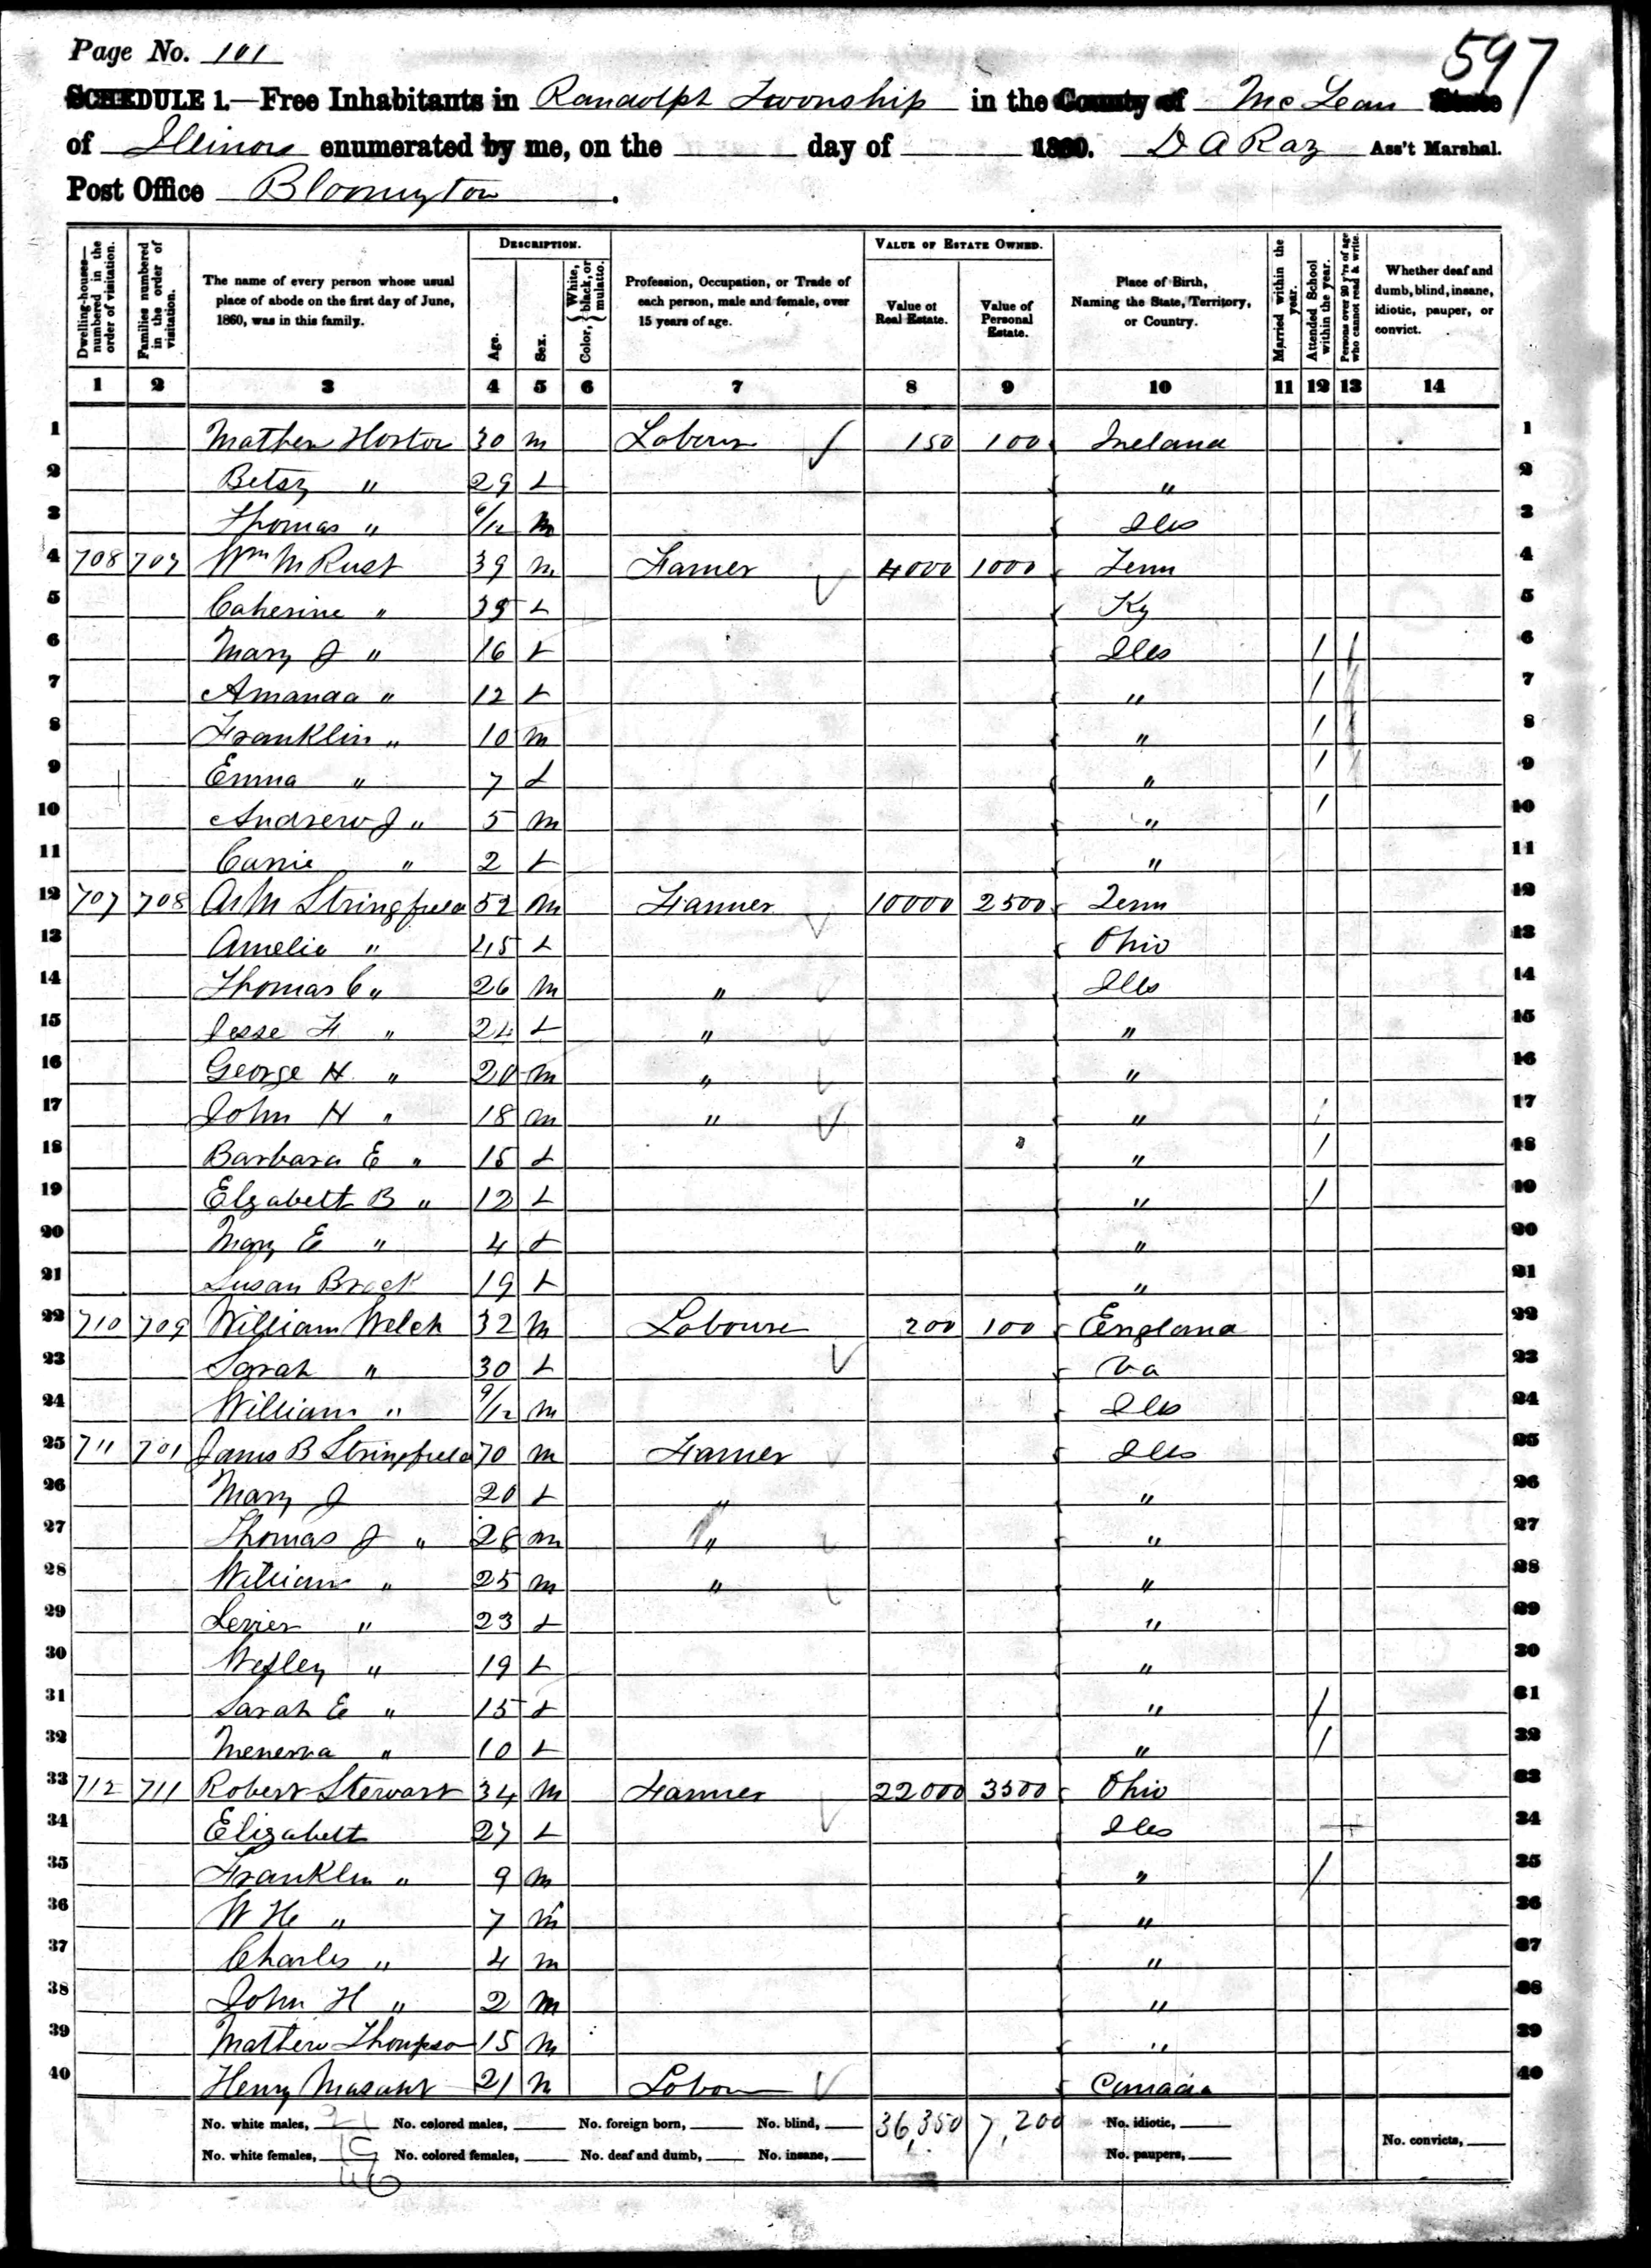 597
Page No. 101
SCHEDULE 1.—Free Inhabitants in Randolph Township in the County of McLean State
of Illinois enumerated by me, on the ___ day of ___ 1860. D A Raz Ass't Marshal.
Post Office Bloomington.
DESCRIPTION. VALUE OF ESTATE OWNED.
Dwelling-houses—numbered in the order of visitation. Families numbered in the order of visitation. The name of every person whose usual place of abode on the first day of June, 1860, was in this family. Age. Sex. Color, {White, black, or mulatto. Profession, Occupation, or Trade of each person, male and female, over 15 years of age. Value of Real Estate. Value of Personal Estate. Place of Birth, Naming the State, Territory, or Country. Married within the year. Attended School within the year. Persons over 20 y'rs of age who cannot read & write. Whether deaf and dumb, blind, insane, idiotic, pauper, or convict.
1 2 3 4 5 6 7 8 9 10 11 12 13 14
1 Mathew 30 m Laborer 150 100 Ireland 1
2 Betsy " 29 f " 2
3 Thomas " /12 m Ills 3
4 708 707 Wm M Rust 39 m Farmer 4000 1000 Tenn 4
5 Caherine " 35 f Ky 5
6 Mary J " 16 f Ills / / 6
7 Amanda " 12 f " / / 7
8 Franklin " 10 m " / / 8
9 Emma " 7 f " / / 9
10 Andrew J " 5 m " / 10
11 Carrie " 2 f " 11
12 707 708 A M Stringfield 52 m Farmer 10000 2500 Tenn 12
13 Amelia " 45 f Ohio 13
14 Thomas C " 26 m " Ills 14
15 Jesse F " 24 f " " 15
16 George H " 20 m " " 16
17 John H " 18 m " " / 17
18 Barbara E " 15 f " / 18
19 Elzabett B " 12 f " / 19
20 Mary E " 4 f " 20
21 Susan Brock 19 f " 21
22 710 709 William Welch 32 m Laborer 200 100 England 22
23 Sarah " 30 f Va 23
24 William " 9/12 m Ills 24
25 711 701 James B Stringfield 70 m Farmer Ills 25
26 Mary J 20 f " " 26
27 Thomas J " 28 m " " 27
28 William " 25 m " " 28
29 " 23 f " 29
30 Wesley " 19 f " 30
31 Sarah E " 15 f " / 31
32 Menerva " 10 f " / 32
33 712 711 Robert Stewart 34 m Farmer 22000 3500 Ohio 33
34 Elizabett 27 f Ills + 34
35 Franklin " 9 m " / 35
36 W H " 7 m " 36
37 Charles " 4 m " 37
38 John H " 2 m " 38
39 Mathew Thompson 15 m " 39
40 Henry 21 m Labor Canada 40
No. white males, 21 No. colored males, ___ No. foreign born, ___ No. blind, ___ 36,350 7,200 No. idiotic, ___
No. white females, 19 No. colored females, ___ No. deaf and dumb, ___ No. insane, ___ No. paupers, ___ No. convicts, ___